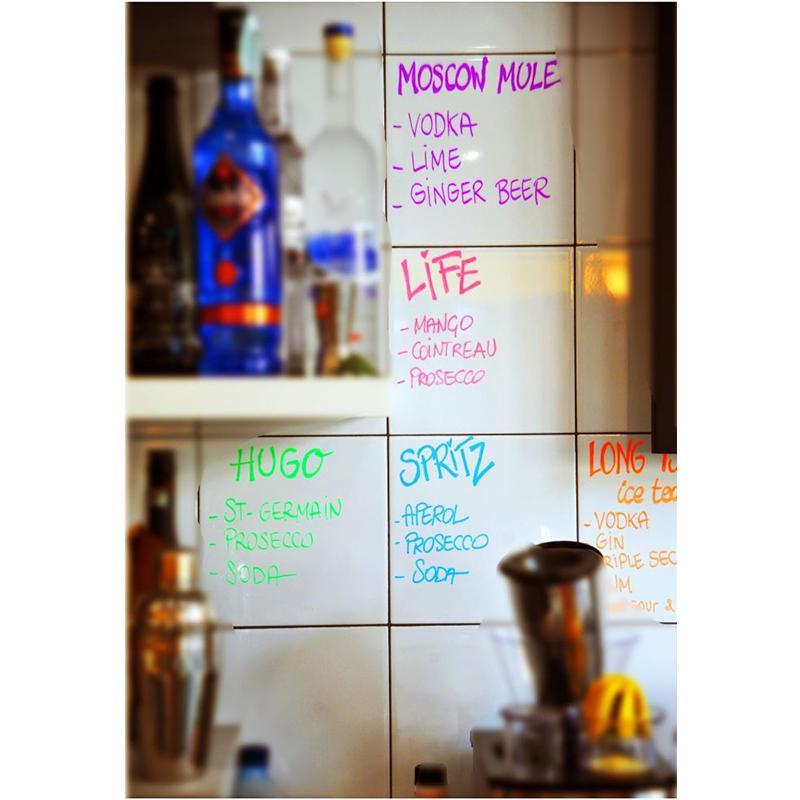 MOSCOW MULE
- VODKA
- LIME
- GINGER BEER
LIFE
- MANGO
- COINTREAU
- PROSECCO
HUGO
- ST-GERMAIN
- PROSECCO
- SODA
SPRITZ
- APEROL
- PROSECCO
- SODA
LONG
ice tea
- VODKA
GIN
RIPLE SEC